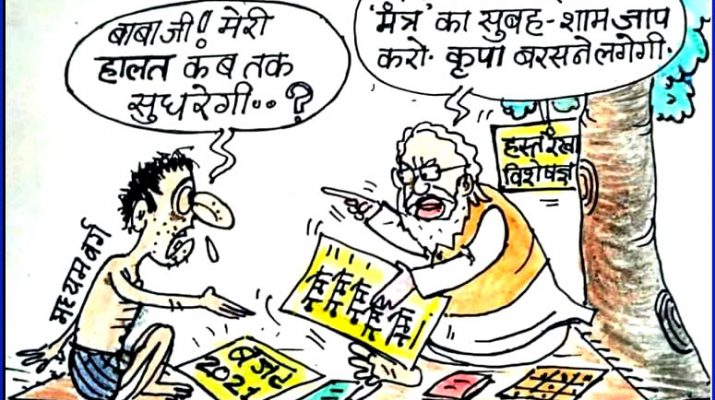 बाबाजी! मेरी
हालत कब तक
सुधरेगी..?
'मंत्र' का सुबह-शाम जाप
करो. कृपा बरसने लगेगी.
हस्त रेखा
विशेषज्ञ
मध्यम वर्ग
बजट
2021